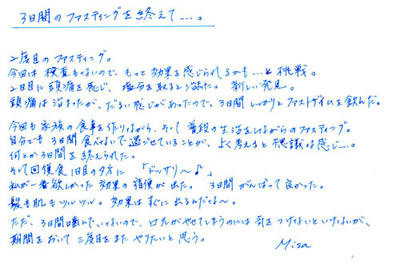 3日間のファスティングを終えて….。
2度目のファスティング。
今回は検査もないので、もっと効果を感じられるかも…と挑戦。
2日目に頭痛を感じ、塩分を取ると治った。新しい発見。
頭痛は治まったが、だるい感じがあったので、3日間しっかりとファストザイムを飲んだ。
今回も家族の食事を作りながら、そして普段の生活をしながらのファスティング。
自分でも3日間食べないで過ごせていることが、よく考えると不思議な感じ…。
何とか3日間を終えられた。
そして回復食1日目の夕方に「ドッサリ〜♪」
私が一番欲しかった効果の宿便が出た。3日間がんばって良かった。
髪も肌もツルツル。効果はすぐに出るんだな〜
ただ、3日間噛んでいないので、口元がやせてしまうのには気をつけないといけないが、
期間をおいて三度目をまたやりたいと思う。
Misa